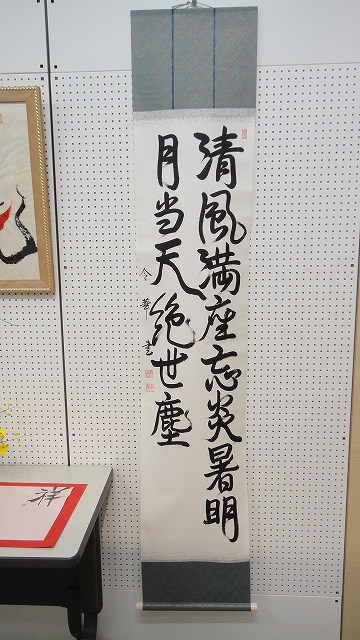 清風満座忘炎暑明
月当天絶世塵
令華書
祥